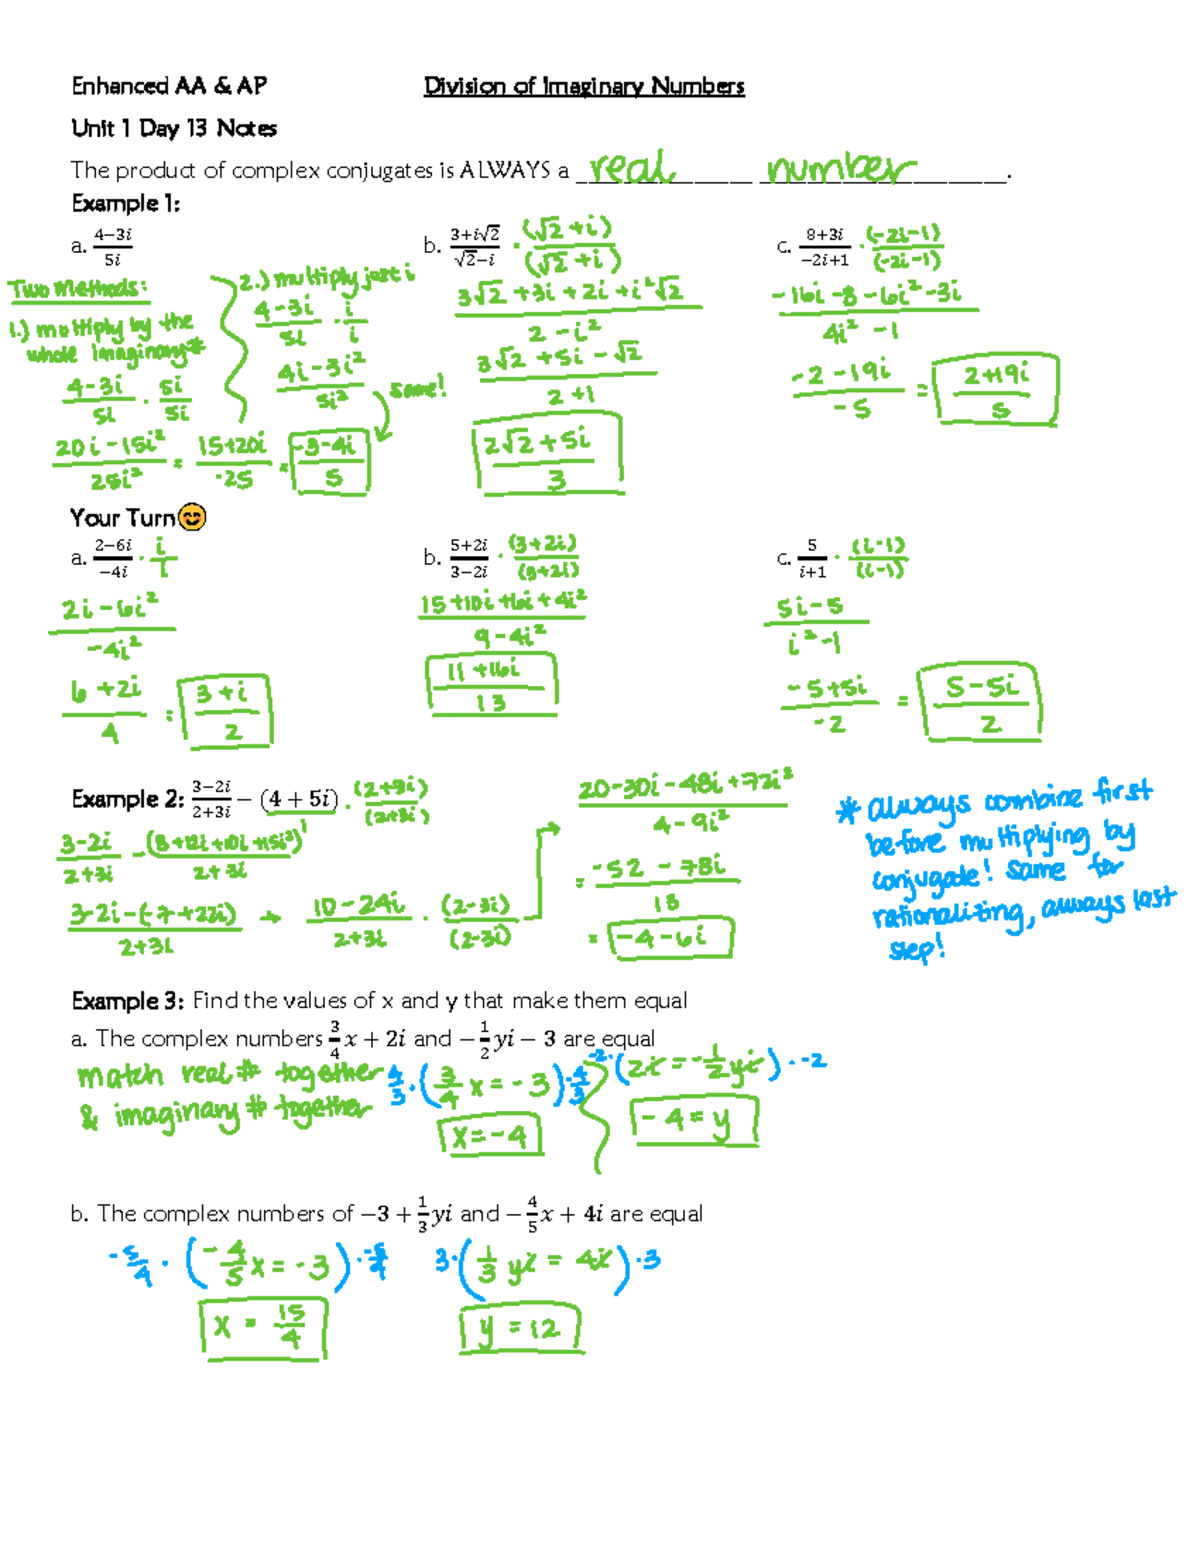 Enhanced AA & AP Division of Imaginary Numbers
Unit 1 Day 13 Notes
The product of complex conjugates is ALWAYS a real number.
Example 1:
a. (4−3i)/(5i)
Two Methods:
1.) multiply by the
whole imaginary #
(4-3i)/(5i) · (5i)/(5i)
(20i-15i²)/(25i²) = (15+20i)/(-25) = (-3-4i)/5
2.) multiply just i
(4-3i)/(5i) · i/i
(4i-3i²)/(5i²)
same!
b. (3+i√2)/(√2−i) · (√2+i)/(√2+i)
(3√2+3i+2i+i²√2)/(2-i²)
(3√2+5i-√2)/(2+1)
(2√2+5i)/3
c. (8+3i)/(−2i+1) · (-2i-1)/(-2i-1)
(-16i-8-6i²-3i)/(4i²-1)
(-2-19i)/(-5) = (2+19i)/5
Your Turn😊
a. (2−6i)/(−4i) · i/i
(2i-6i²)/(-4i²)
(6+2i)/4 = (3+i)/2
b. (5+2i)/(3−2i) · (3+2i)/(3+2i)
(15+10i+6i+4i²)/(9-4i²)
(11+16i)/13
c. 5/(i+1) · (i-1)/(i-1)
(5i-5)/(i²-1)
(-5+5i)/(-2) = (5-5i)/2
Example 2: (3−2i)/(2+3i) − (4 + 5i) · (2+3i)/(2+3i)
(3-2i)/(2+3i) - (8+12i+10i+15i²)/(2+3i)
(3-2i-(-7+22i))/(2+3i) → (10-24i)/(2+3i) · (2-3i)/(2-3i)
(20-30i-48i+72i²)/(4-9i²)
= (-52-78i)/13
= -4-6i
* always combine first
before multiplying by
conjugate! same for
rationalizing, always last
step!
Example 3: Find the values of x and y that make them equal
a. The complex numbers 3/4 x + 2i and −1/2 yi − 3 are equal
match real # together
& imaginary # together
4/3 · (3/4 x = -3) · 4/3
x = -4
-2 · (2i = -1/2 yi) · -2
-4 = y
b. The complex numbers of −3 + 1/3 yi and −4/5 x + 4i are equal
-5/4 · (-4/5 x = -3) · -5/4
x = 15/4
3 · (1/3 yi = 4i) · 3
y = 12